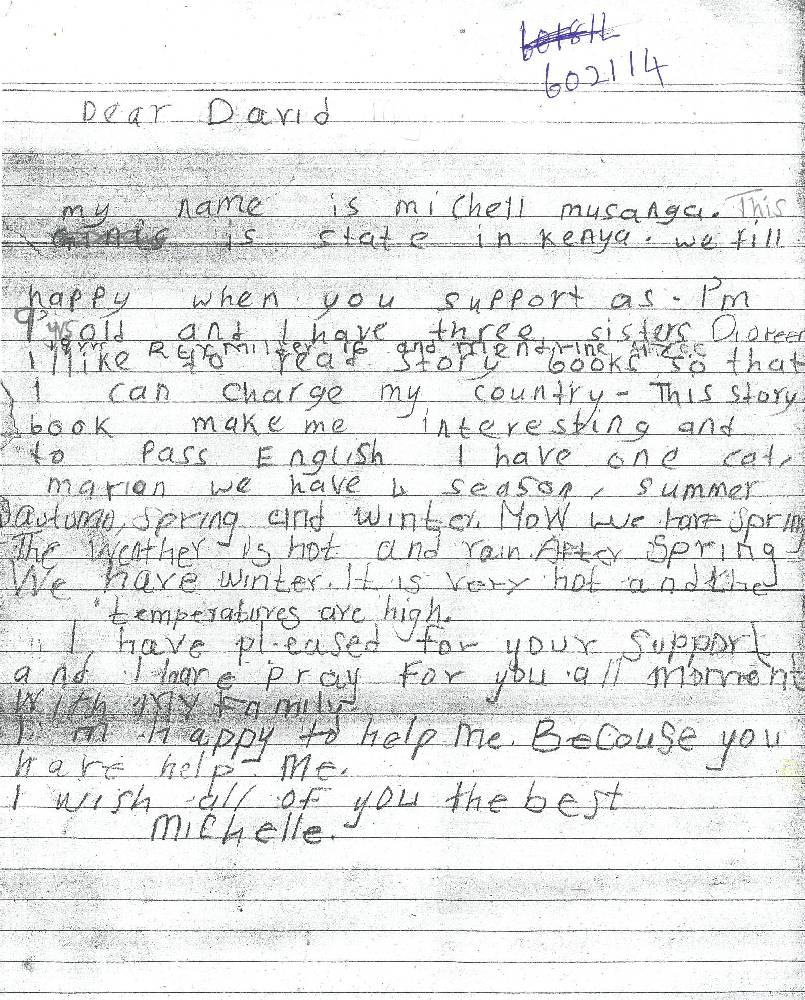 602114
Dear David
my name is miChell musanga. This
is state in Kenya. we fill
happy when you support as. I'm
9 yrs old and I have three sisters
and
I like to read story books so that
I can Charge my country - This story
book make me interesting and
to Pass English I have one cat,
marion we have 4 season, summer
autumn, Spring and winter. Now we have Spring
The Weather is hot and rain. After Spring
We have winter. It is very hot and the
temperatures are high.
I have pleased for your Support
and I have pray for you all moment
With My family
I'm happy to help me. Becouse you
have help me.
I wish all of you the best
Michelle.